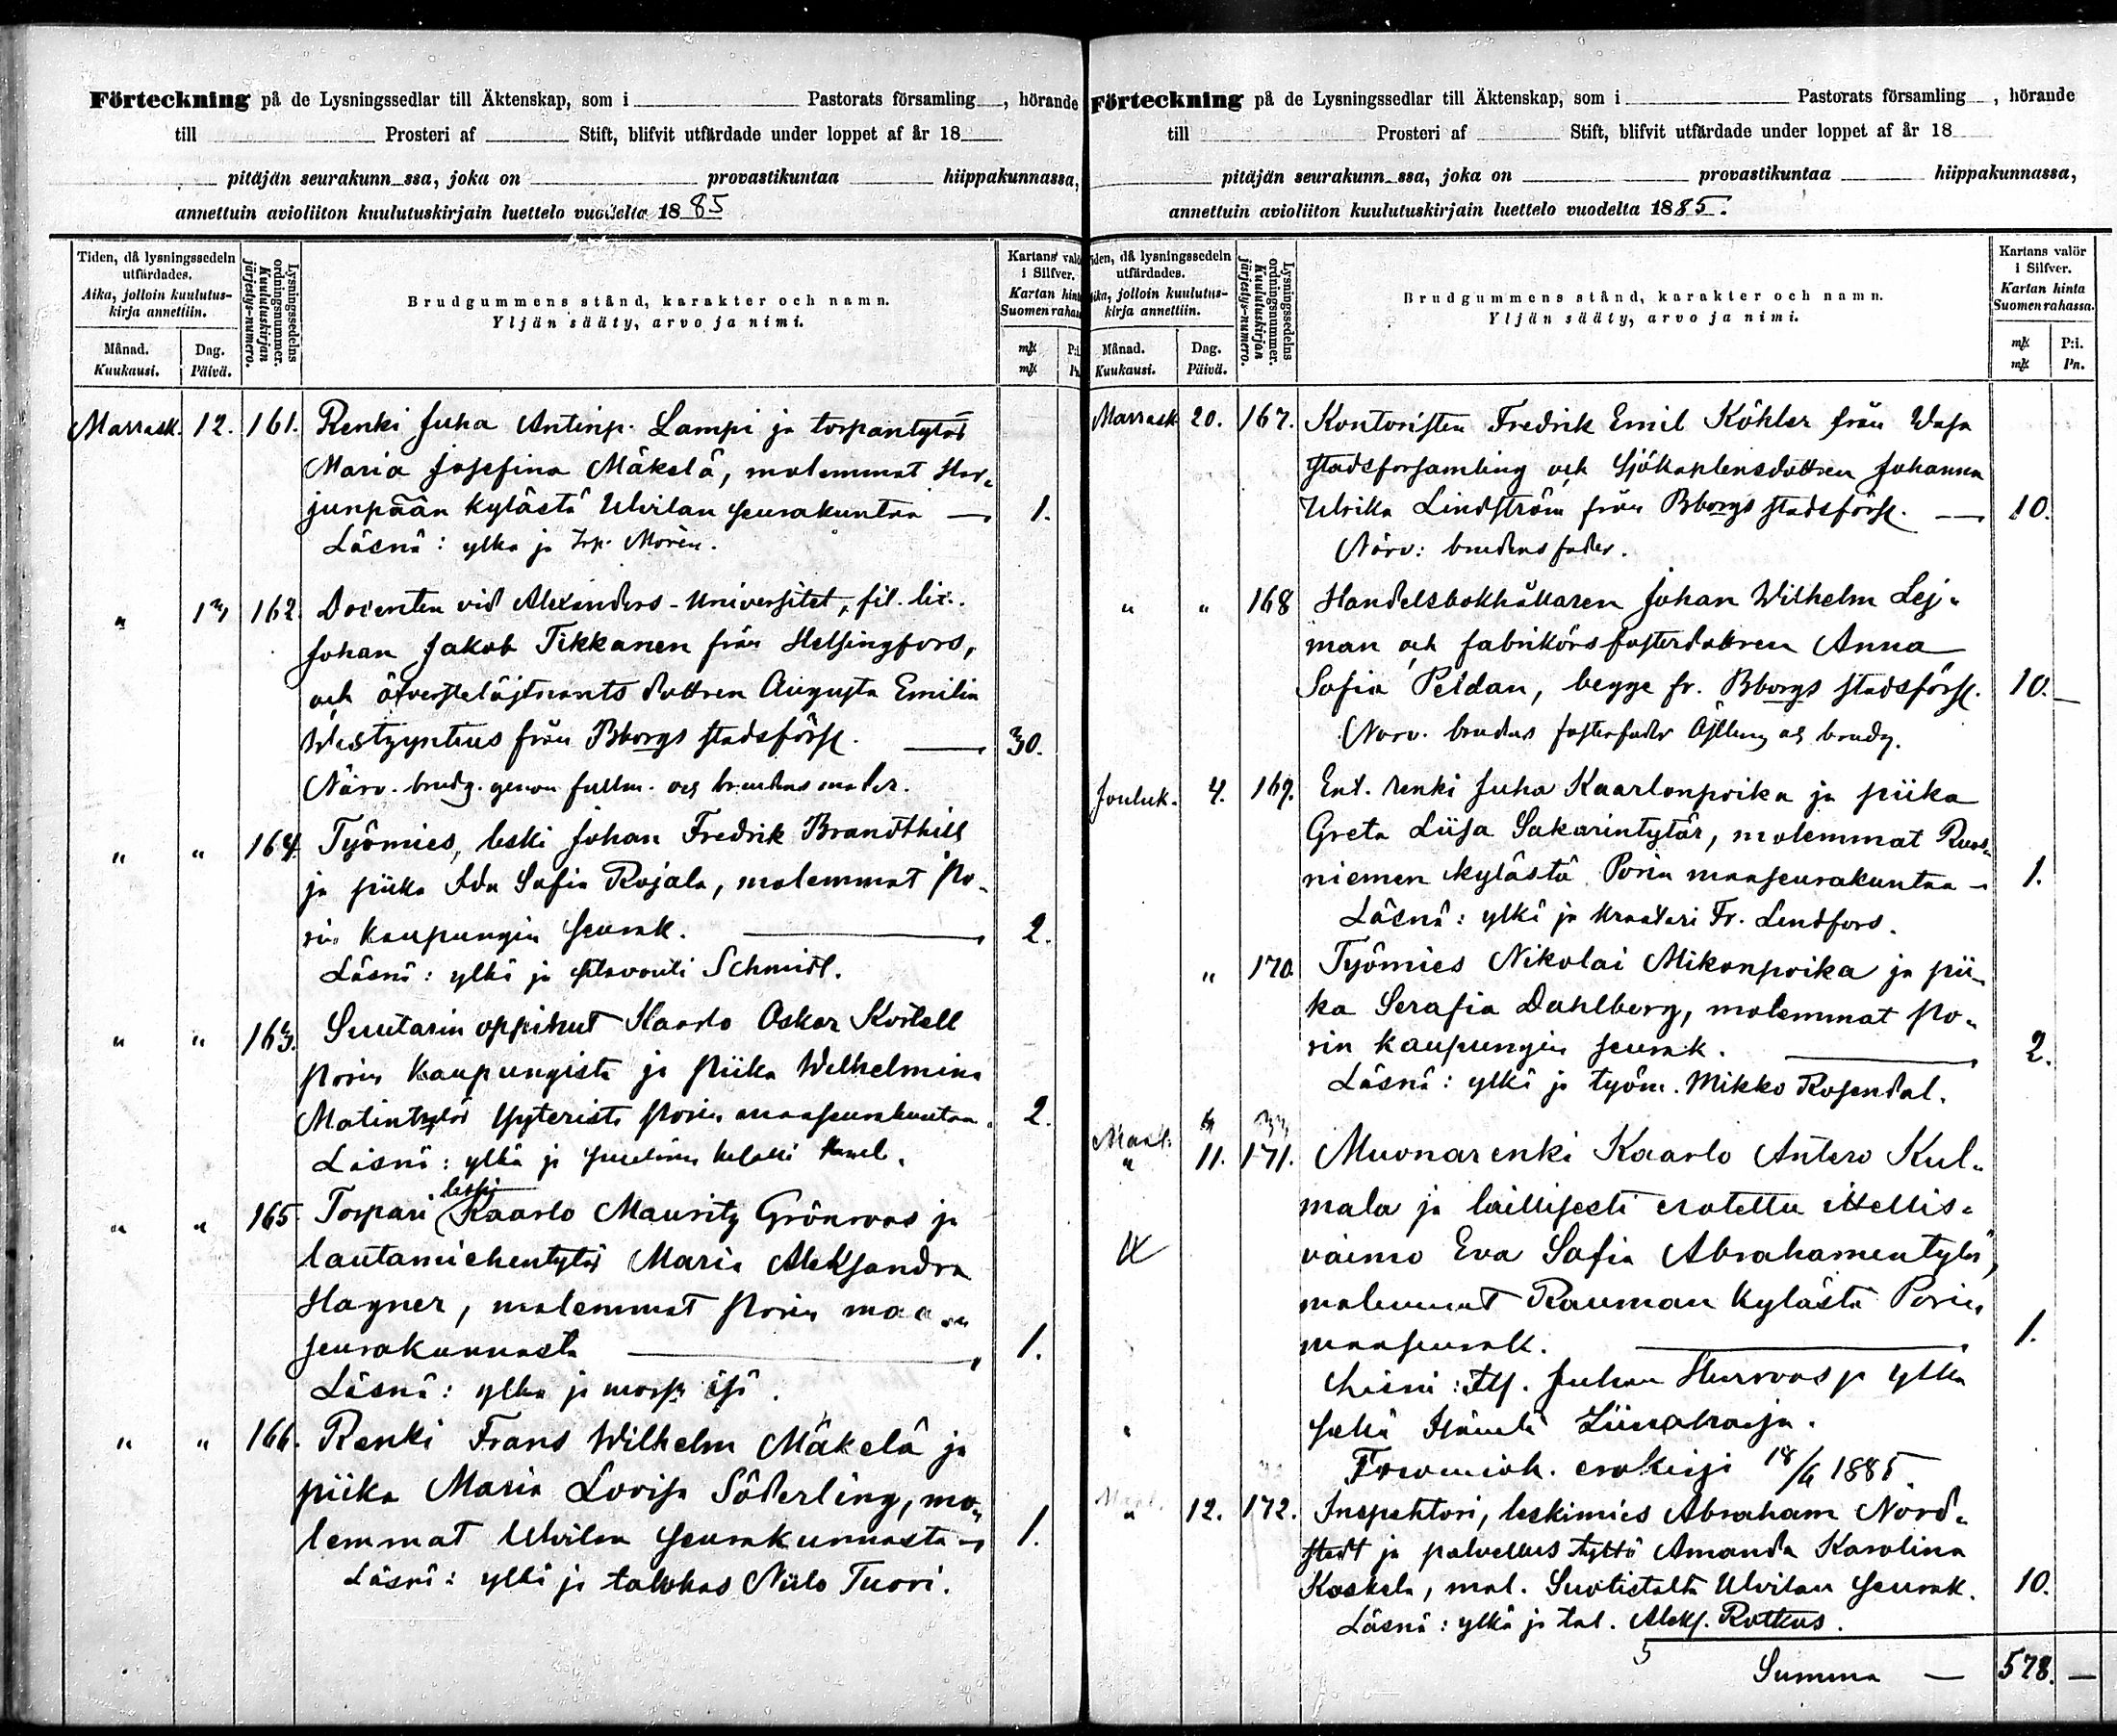 Förteckning på de Lysningssedlar till Äktenskap, som i Pastorats församling, hörande
till Prosteri af Stift, blifvit utfärdade under loppet af år 18
pitäjän seurakunn ssa, joka on provastikuntaa hiippakunnassa,
annettuin avioliiton kuulutuskirjain luettelo vuodelta 1885
Tiden, då lysningssedeln
utfärdades.
Aika, jolloin kuulutus-
kirja annettiin.
Månad.
Kuukausi.
Dag.
Päivä.
Lysningssedelns
ordningsnummer.
Kuulutuskirjan
järjestys-numero.
Brudgummens stånd, karakter och namn.
Yljän sääty, arvo ja nimi.
Kartans valör
i Silfver.
Kartan hinta
Suomen rahassa
mk P:i
mk Pn
Marrask. 12. 161. Renki Juha Antinp. Lampi ja torpantytär
Maria Josefina Mäkelä, molemmat Har-
junpään kylästä Ulvilan seurakuntaa — 1.
Läsnä: ylkä ja trp. Morén.
" 13 162. Docenten vid Alexanders-Universitet, fil. lic.
Johan Jakob Tikkanen från Helsingfors,
och öfverstelöjtnants dottren Augusta Emilia
Westzynthius från Bborgs stadsförs. — 30.
Närv. brudg. genom fullm. och brudens moder.
" " 164. Työmies, leski Johan Fredrik Brandthill
ja piika Ida Sofia Rajala, molemmat Po-
rin kaupungin seurak. — 2.
Läsnä: ylkä ja Schmidt.
" " 163. Suutarin oppinut Kaarlo Oskar Kortell
Porin kaupungista ja piika Wilhelmina
Matintytär Yyteristä Porin maaseurakuntaa. 2.
Läsnä: ylkä ja
leski
" " 165. Torpari Kaarlo Mauritz Grönroos ja
lautamiehentytär Maria Aleksandra
Hagner, molemmat Porin maa-
seurakunnasta — 1.
Läsnä: ylkä ja mors. isä.
" " 166. Renki Frans Wilhelm Mäkelä ja
piika Maria Lovisa Söderling, mo-
lemmat Ulvilan seurakunnasta — 1.
Läsnä: ylkä ja talokas Niilo Tuori.
Förteckning på de Lysningssedlar till Äktenskap, som i Pastorats församling, hörande
till Prosteri af Stift, blifvit utfärdade under loppet af år 18
pitäjän seurakunn ssa, joka on provastikuntaa hiippakunnassa,
annettuin avioliiton kuulutuskirjain luettelo vuodelta 1885.
Tiden, då lysningssedeln
utfärdades.
Aika, jolloin kuulutus-
kirja annettiin.
Månad.
Kuukausi.
Dag.
Päivä.
Lysningssedelns
ordningsnummer.
Kuulutuskirjan
järjestys-numero.
Brudgummens stånd, karakter och namn.
Yljän sääty, arvo ja nimi.
Kartans valör
i Silfver.
Kartan hinta
Suomen rahassa.
mk P:i.
mk Pn.
Marrask 20. 167. Kontoristen Fredrik Emil Köhler från Wasa
stadsforsamling och Sjökaptensdottren Johanna
Ulrika Lindström från Bborgs stadsförs. — 10.
Närv: brudens fader.
" " 168 Handelsbokhållaren Johan Wilhelm Lej-
man och fabrikörsfosterdottren Anna
Sofia Peldan, begge fr. Bborgs stadsförs. 10. —
Närv. brudens fosterfader och brudg.
Jouluk. 4. 169. Ent. renki Juha Kaarlonpoika ja piika
Greta Liisa Sakarintytär, molemmat Ruos-
niemen kylästä Porin maaseurakuntaa — 1.
Läsnä: ylkä ja kraatari Fr. Lindfors.
" 170. Työmies Nikolai Mikonpoika ja pii-
ka Serafia Dahlberg, molemmat Po-
rin kaupungin seurak. — 2.
Läsnä: ylkä ja työm. Mikko Rosendal.
" 11. 171. Muonarenki Kaarlo Antero Kul-
mala ja laillisesti erotettu itsellis-
vaimo Eva Sofia Abrahamentytär,
molemmat Rauman kylästä Porin
maaseurak. — 1.
Läsnä: Juhan ja ylkä
sekä
erokirja 18/6 1885.
" 12. 172. Inspehtori, leskimies Abraham Nord-
stedt ja palvellus tyttö Amanda Karolina
Koskela, mol. Suotistalta Ulvilan seurak. 10.
Läsnä: ylkä ja tal. Aleks. Rotkus.
Summa — 578. —